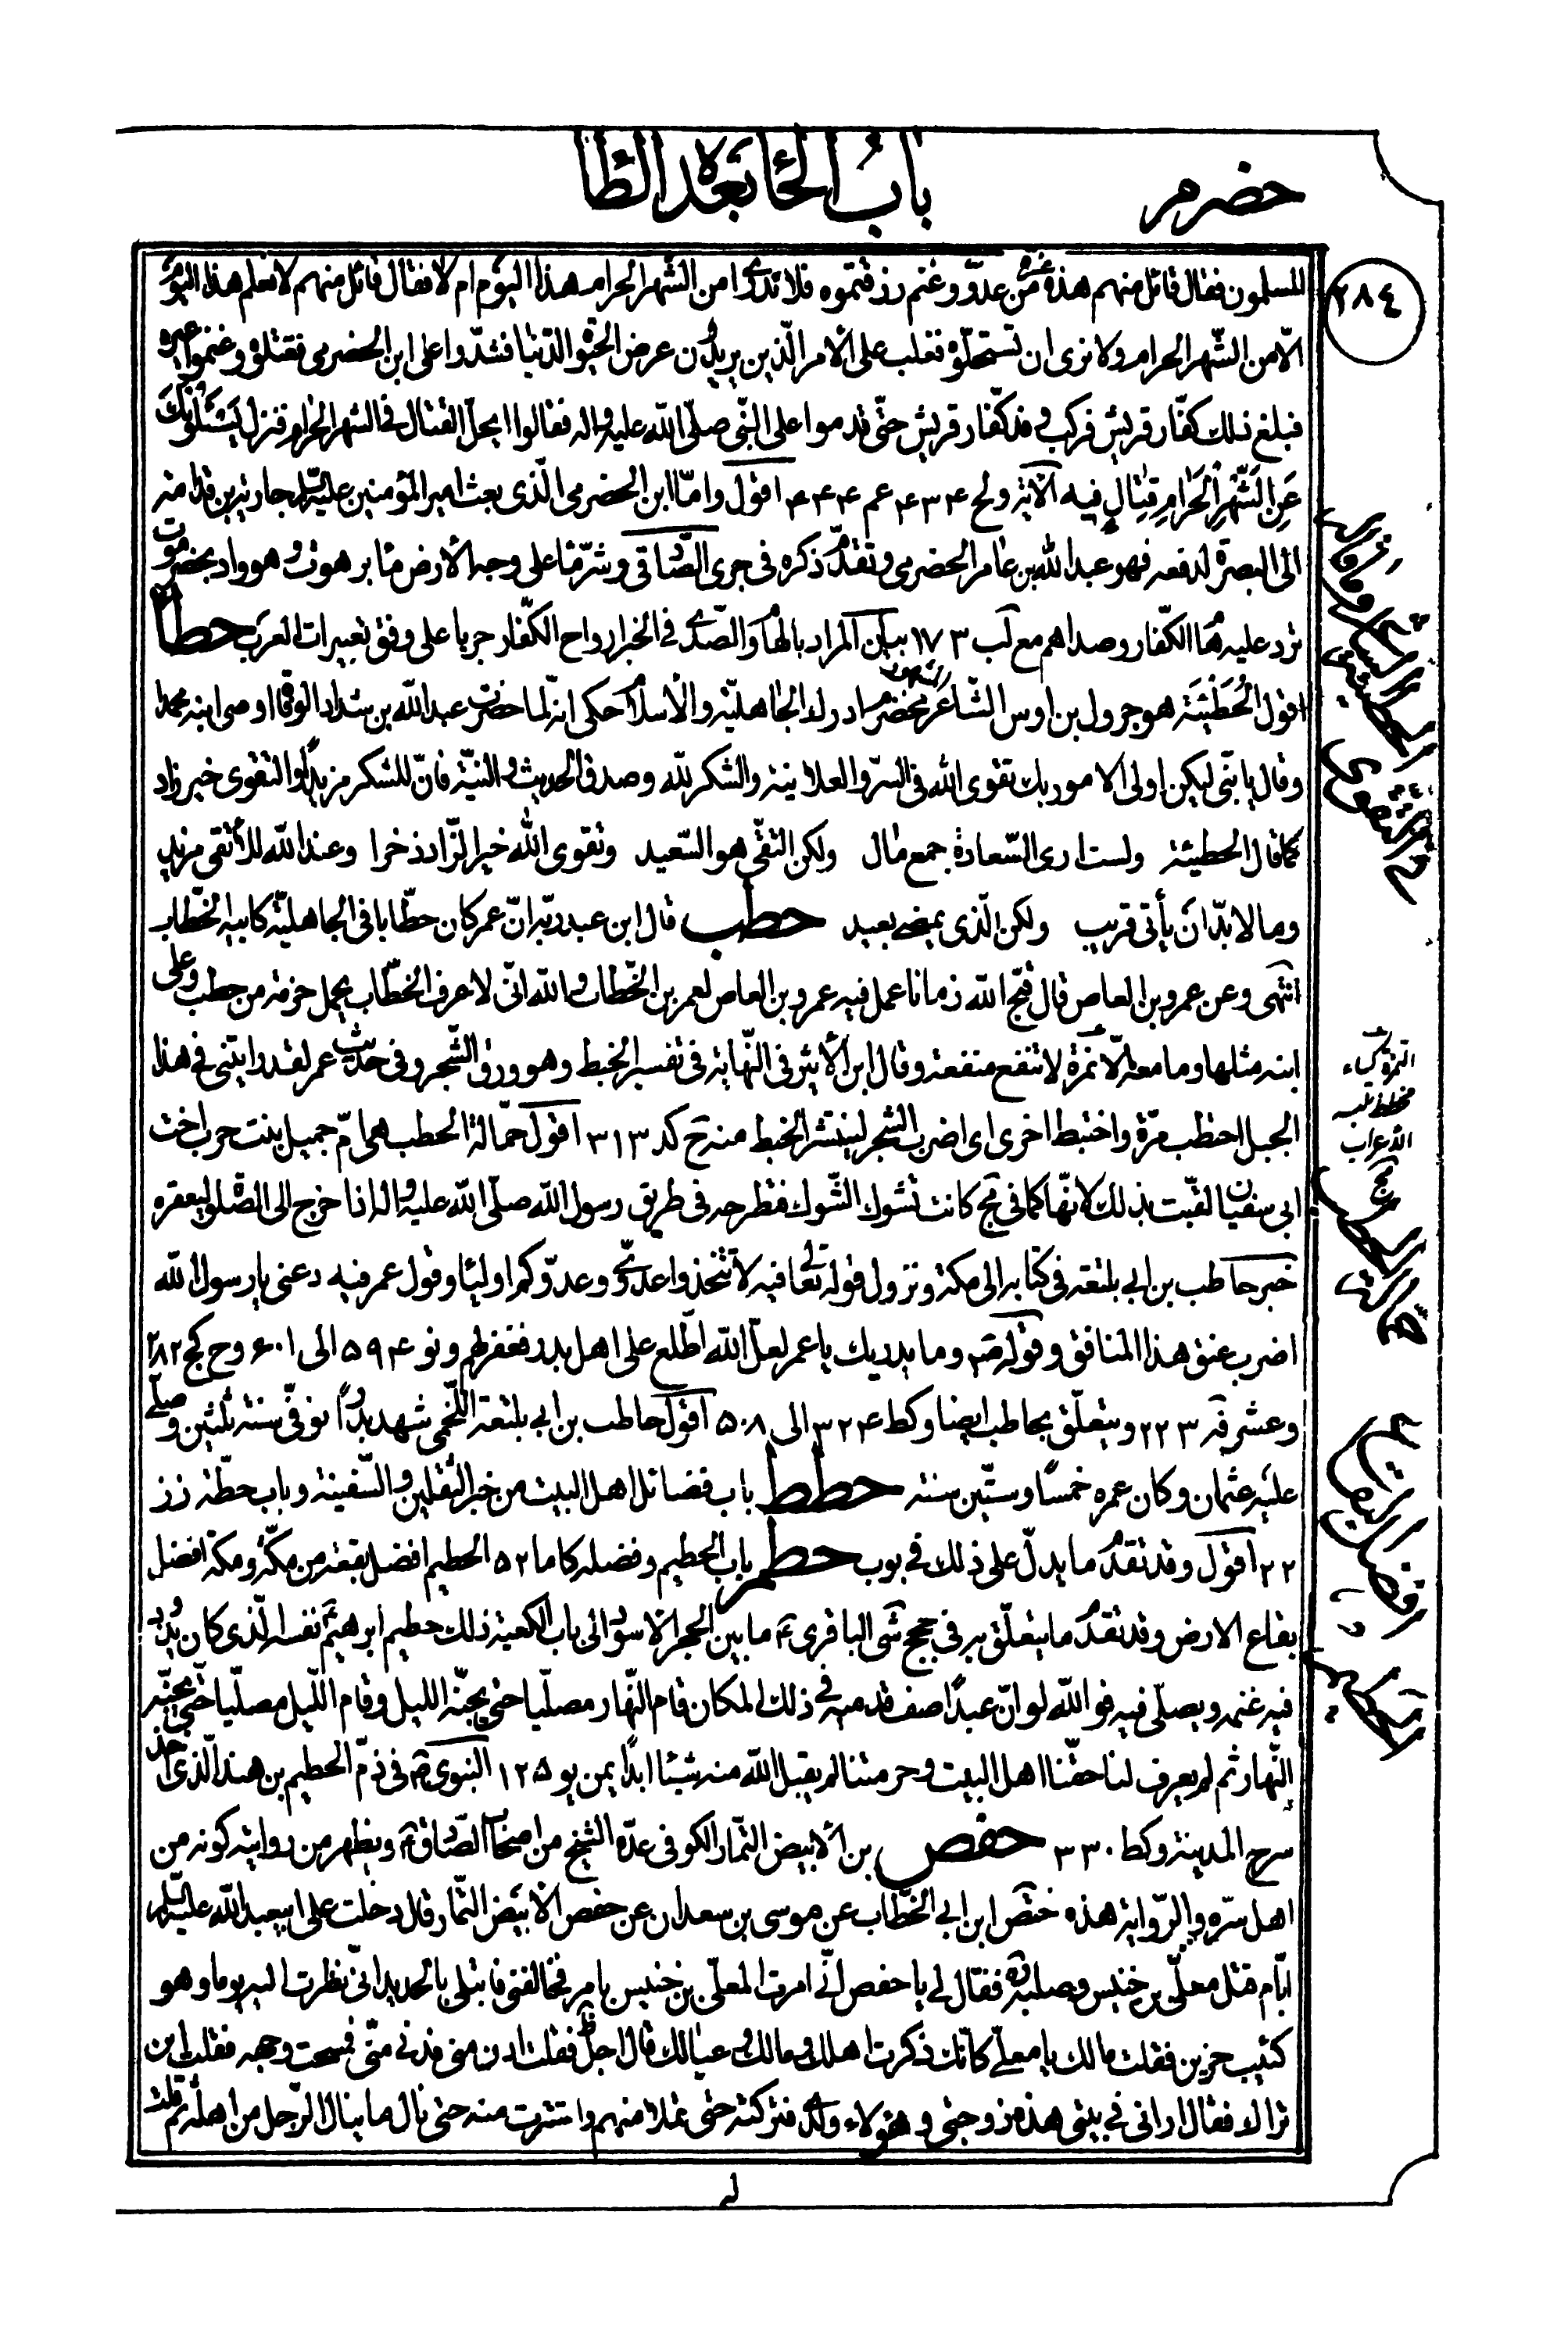 حضرم
باب الحاء بعده الطاء
٢٨٤
المسلمون فقال قائل منهم هذه غرّة من عدوّ وغنم رزقتموه فلا ندري أمن الشهر الحرام هذا اليوم ام لا فقال قائل منهم لا نعلم هذا اليوم
الّا من الشّهر الحرام ولا نرى ان تستحلّوه فغلب على الأمر الّذين يريدون عرض الحيوة الدّنيا فشدّوا على ابن الحضرمى فقتلوه وغنموا عيره
فبلغ ذلك كفّار قريش فركب وفد كفّار قريش حتّى قدموا على النّبى صلّى الله عليه وآله فقالوا ايحلّ القتال فى الشهر الحرام فنزل يَسْئَلُونَكَ
عَنِ الشَّهْرِ الْحَرامِ قِتالٍ فيه الآية ولح ٤٣٤ عم ٤٤٤ اقول وامّا ابن الحضرمى الّذى بعث امير المؤمنين عليه السلم جارية بن قدامة
الى البصرة لدفعه فهو عبد الله بن عامر الحضرمى وتقدّم ذكره فى جرى الصّادقى وشرّ ماء على وجه الأرض ماء برهوت وهو واد بحضرموت
ترد عليه هام الكفّار وصداهم مع لب ١٧٣ بيان المراد بالهام والصّدى فى الخبر ارواح الكفّار جريا على وفق تعبيرات العرب حطأ
اقول الحُطَيْئَة هو جرول بن اوس الشّاعر مخضرم ادرك الجاهليّة والأسلام حكى انّه لما حضرت عبد الله بن شداد الوفاة اوصى ابنه محمدا
وقال يا بنىّ ليكن اولى الامور بك تقوى الله فى السرّ والعلانية والشكر لله وصدق الحديث والنيّة فانّ للشكر مزيدا والتقوى خير زاد
كما قال الحطيئة ولست ارى السّعادة جمع مال ولكن التقىّ هو السّعيد وتقوى الله خير الزّاد ذخرا وعند الله للأتقى مزيد
وما لا بدّ ان يأتى قريب ولكن الّذى يمضى بعيد حطب قال ابن عبد ربّه انّ عمر كان حطّابا فى الجاهليّة كابيه الخطّاب
انتهى وعن عمرو بن العاص قال قبّح الله زمانا عمل فيه عمرو بن العاص لعمر بن الخطّاب والله انّى لاعرف الخطّاب يحمل حزمة من حطب وعلى
ابنه مثلها وما معه الّا نمرة لا تنفع منفعة وقال ابن الأثير فى النّهاية فى تفسير الخبط وهو ورق الشّجر وفى حديث عمر لقد رايتنى فى هذا
الجبل احتطب مرّة واختبط اخرى اى اضرب الشجر لينتثر الخبط منه ح كد ٣١٣ اقول حمّالة الحطب هى امّ جميل بنت حرب اخت
ابى سفيان لقّبت بذلك لانّها كما فى مج كانت تشوك الشّوك فتطرحه فى طريق رسول الله صلّى الله عليه وآله اذا خرج الى الصّلوة ليعقره
خبر حاطب بن ابى بلتعة فى كتابه الى مكة ونزول قوله تعالى فيه لا تتخذوا عدوّى وعدوّكم اولياء وقول عمر فيه دعنى يا رسول الله
اضرب عنق هذا المنافق وقوله ص وما يدريك يا عمر لعلّ الله اطّلع على اهل بدر فغفر لهم ونو ٥٩٤ الى ٦٠١ وح كج ٢٨٢
وعشر قد ٢٢٣ ويتعلّق بحاطب ايضا وكط ٣٢٤ الى ٥٠٨ اقول حاطب بن ابى بلتعة اللّخمى شهد بدرا توفّى سنة ثلثين وصلّى
عليه عثمان وكان عمره خمسًا وستّين سنة حطط باب فضائل اهل البيت من خبر الثقلين والسّفينة وباب حطّة زز
٢٢ اقول وقد تقدّم ما يدلّ على ذلك فى بوب حطم باب الحطيم وفضله كا ما ٥٢ الحطيم افضل بقعة من مكّة ومكة افضل
بقاع الارض وقد تقدّم ما يتعلّق به فى حجج شى الباقرى ع ما بين الحجر الاسود الى باب الكعبة ذلك حطيم ابرهيم نفسه الّذى كان يذود
فيه غنمه ويصلّى فيه فو الله لو انّ عبدًا صفّ قدميه فى ذلك المكان قام النّهار مصلّيا حتى يجنّه الليل وقام اللّيل مصلّيا حتى يجنّه
النّهار ثم لم يعرف لنا حقّنا اهل البيت وحرمتنا لم يقبل الله منه شيئا ابدًا يمن يو ١٢٥ النبوى ص فى ذمّ الحطيم بن هند الّذى اخذ
سرح المدينة وكط ٣٣٠ حفص بن الأبيض التمّار الكوفى عدّه الشيخ من اصحاب الصّادق ع ويظهر من روايته كونه من
اهل سرّه والرّواية هذه ختص ابن ابى الخطّاب عن موسى بن سعدان عن حفص الأبيض التمّار قال دخلت على ابيعبد الله عليه السلم
ايّام قتل معلّى بن خنيس وصلبه ره فقال لى يا حفص انّى امرت المعلّى بن خنيس بامر فخالفنى فابتلى بالحديد انّى نظرت اليه يوما وهو
كئيب حزين فقلت مالك يا معلّى كانّك ذكرت اهلك ومالك وعيالك قال اجل فقلت ادن منى فدنى منّى فمسحت وجهه فقلت اين
تراك فقال ارانى فى بيتى هذه زوجتى وهؤلاء ولدى فتركته حتى تملّا منهم واستترت منه حتى نال ما ينال الرّجل من اهله ثم قلت
النمرة كساء
مخطط تلبسه
الاعراب
له